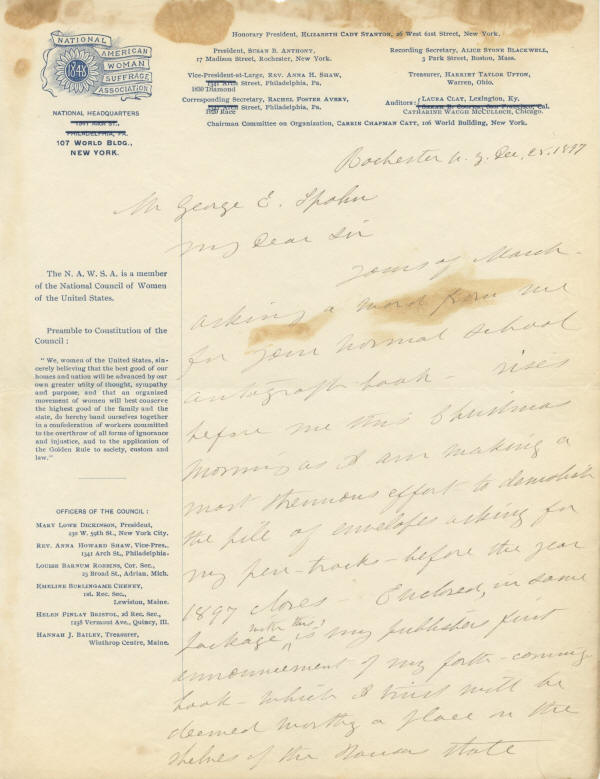 NATIONAL
AMERICAN
WOMAN
SUFFRAGE
ASSOCIATION
1848
NATIONAL HEADQUARTERS
1341 ARCH ST.,
PHILADELPHIA, PA.
107 WORLD BLDG.,
NEW YORK.
Honorary President, ELIZABETH CADY STANTON, 26 West 61st Street, New York.
President, SUSAN B. ANTHONY,
17 Madison Street, Rochester, New York.
Vice-President-at-Large, REV. ANNA H. SHAW,
1341 Arch Street, Philadelphia, Pa.
1830 Diamond
Corresponding Secretary, RACHEL FOSTER AVERY,
1341 Arch Street, Philadelphia, Pa.
Race
Recording Secretary, ALICE STONE BLACKWELL,
3 Park Street, Boston, Mass.
Treasurer, HARRIET TAYLOR UPTON,
Warren, Ohio.
Auditors: LAURA CLAY, Lexington, Ky.
San Francisco, Cal.
CATHARINE WAUGH McCULLOCH, Chicago.
Chairman Committee on Organization, CARRIE CHAPMAN CATT, 106 World Building, New York.
Rochester N. Y. Dec. 25. 1897
Mr George E. Spohn
My Dear Sir
Yours of March-
asking a word from me
for your normal school
autograph-book - rises
before me this Christmas
Morning as I am making a
most strenuous effort to demolish
the pile of envelopes asking for
my pen-tracks - before the year
1897 closes - Enclosed, in same
package with this, is my publishers first
announcement of my forth-coming
book - which I trust will be
deemed worthy a place on the
shelves of the Kansas State
The N. A. W. S. A. is a member
of the National Council of Women
of the United States.
Preamble to Constitution of the
Council :
" We, women of the United States, sin-
cerely believing that the best good of our
homes and nation will be advanced by our
own greater unity of thought, sympathy
and purpose, and that an organized
movement of women will best conserve
the highest good of the family and the
state, do hereby band ourselves together
in a confederation of workers committed
to the overthrow of all forms of ignorance
and injustice, and to the application of
the Golden Rule to society, custom and
law."
OFFICERS OF THE COUNCIL :
MARY LOWE DICKINSON, President,
230 W. 59th St., New York City.
REV. ANNA HOWARD SHAW, Vice-Pres.,
1341 Arch St., Philadelphia.
LOUISE BARNUM ROBBINS, Cor. Sec.,
25 Broad St., Adrian, Mich.
EMELINE BURLINGAME CHENEY,
1st. Rec. Sec.,
Lewiston, Maine.
HELEN FINLAY BRISTOL, 2d Rec. Sec.,
1238 Vermont Ave., Quincy, Ill.
HANNAH J. BAILEY, Treasurer,
Winthrop Centre, Maine.